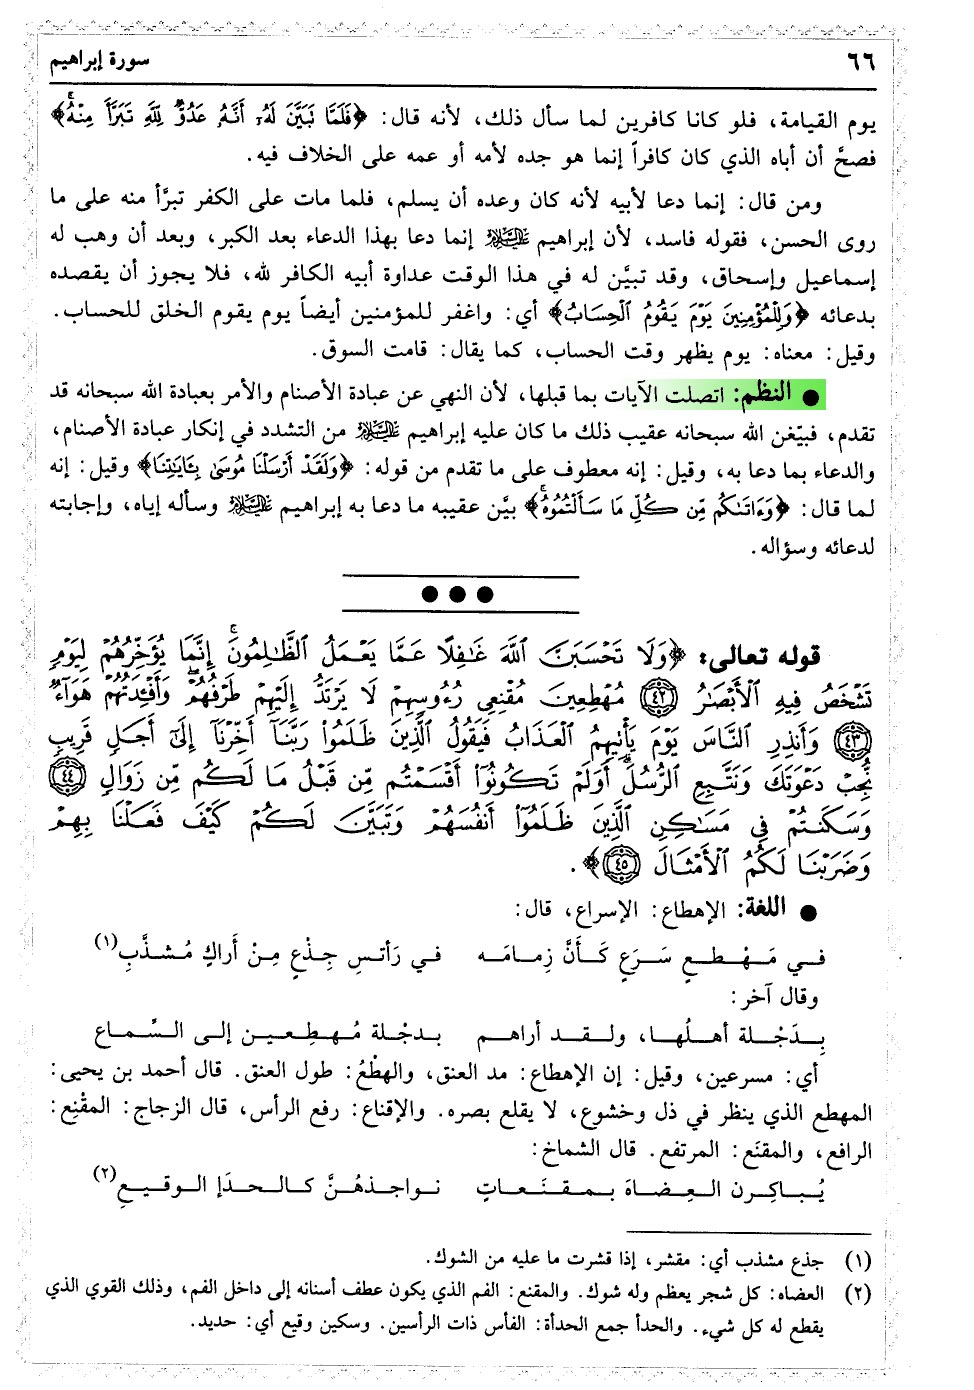 ٦٦ سورة إبراهيم
يوم القيامة، فلو كانا كافرين لما سأل ذلك، لأنه قال: ﴿فَلَمَّا تَبَيَّنَ لَهُۥٓ أَنَّهُۥ عَدُوٌّ لِّلَّهِ تَبَرَّأَ مِنْهُۚ﴾
فصحَّ أن أباه الذي كان كافراً إنما هو جده لأمه أو عمه على الخلاف فيه.
ومن قال: إنما دعا لأبيه لأنه كان وعده أن يسلم، فلما مات على الكفر تبرَّأ منه على ما
روى الحسن، فقوله فاسد، لأن إبراهيم عليه السلام إنما دعا بهذا الدعاء بعد الكبر، وبعد أن وهب له
إسماعيل وإسحاق، وقد تبيَّن له في هذا الوقت عداوة أبيه الكافر لله، فلا يجوز أن يقصده
بدعائه ﴿وَلِلْمُؤْمِنِينَ يَوْمَ يَقُومُ ٱلْحِسَابُ﴾ أي: واغفر للمؤمنين أيضاً يوم يقوم الخلق للحساب.
وقيل: معناه: يوم يظهر وقت الحساب، كما يقال: قامت السوق.
● النظم: اتصلت الآيات بما قبلها، لأن النهي عن عبادة الأصنام والأمر بعبادة الله سبحانه قد
تقدم، فبيّغن الله سبحانه عقيب ذلك ما كان عليه إبراهيم عليه السلام من التشدد في إنكار عبادة الأصنام،
والدعاء بما دعا به، وقيل: إنه معطوف على ما تقدم من قوله: ﴿وَلَقَدْ أَرْسَلْنَا مُوسَىٰ بِـَٔايَٰتِنَا﴾ وقيل: إنه
لما قال: ﴿وَءَاتَىٰكُم مِّن كُلِّ مَا سَأَلْتُمُوهُۚ﴾ بيَّن عقيبه ما دعا به إبراهيم عليه السلام وسأله إياه، وإجابته
لدعائه وسؤاله.
● ● ●
قوله تعالى: ﴿وَلَا تَحْسَبَنَّ ٱللَّهَ غَٰفِلًا عَمَّا يَعْمَلُ ٱلظَّٰلِمُونَۚ إِنَّمَا يُؤَخِّرُهُمْ لِيَوْمٍ
تَشْخَصُ فِيهِ ٱلْأَبْصَٰرُ ٤٢ مُهْطِعِينَ مُقْنِعِي رُءُوسِهِمْ لَا يَرْتَدُّ إِلَيْهِمْ طَرْفُهُمْۖ وَأَفْـِٔدَتُهُمْ هَوَآءٌ
٤٣ وَأَنذِرِ ٱلنَّاسَ يَوْمَ يَأْتِيهِمُ ٱلْعَذَابُ فَيَقُولُ ٱلَّذِينَ ظَلَمُوا۟ رَبَّنَآ أَخِّرْنَآ إِلَىٰٓ أَجَلٍ قَرِيبٍ
نُّجِبْ دَعْوَتَكَ وَنَتَّبِعِ ٱلرُّسُلَۗ أَوَلَمْ تَكُونُوٓا۟ أَقْسَمْتُم مِّن قَبْلُ مَا لَكُم مِّن زَوَالٍ ٤٤
وَسَكَنتُمْ فِي مَسَٰكِنِ ٱلَّذِينَ ظَلَمُوٓا۟ أَنفُسَهُمْ وَتَبَيَّنَ لَكُمْ كَيْفَ فَعَلْنَا بِهِمْ
وَضَرَبْنَا لَكُمُ ٱلْأَمْثَالَ ٤٥﴾.
● اللغة: الإهطاع: الإسراع، قال:
في مَهْطع سَرَعٍ كَأنَّ زِمامَه في رَأتسِ جِذْعٍ مِنْ أَراكٍ مُشذَّبِ(١)
وقال آخر:
بِدَجْلة أهلُها، ولقد أراهم بدجْلة مُهطِعين إلى السَّماع
أي: مسرعين، وقيل: إن الإهطاع: مد العنق، والهطْعُ: طول العنق. قال أحمد بن يحيى:
المهطع الذي ينظر في ذل وخشوع، لا يقلع بصره. والإقناع: رفع الرأس، قال الزجاج: المقْنِع:
الرافع، والمقنَع: المرتفع. قال الشماخ:
يُباكِرن العِضاة بمقنَعاتٍ نواجذهُنَّ كالحدَإ الوقيعِ(٢)
(١) جذع مشذب أي: مقشر، إذا قشرت ما عليه من الشوك.
(٢) العضاه: كل شجر يعظم وله شوك. والمقنع: الفم الذي يكون عطف أسنانه إلى داخل الفم، وذلك القوي الذي
يقطع له كل شيء. والحدأ جمع الحدأة: الفأس ذات الرأسين. وسكين وقيع أي: حديد.